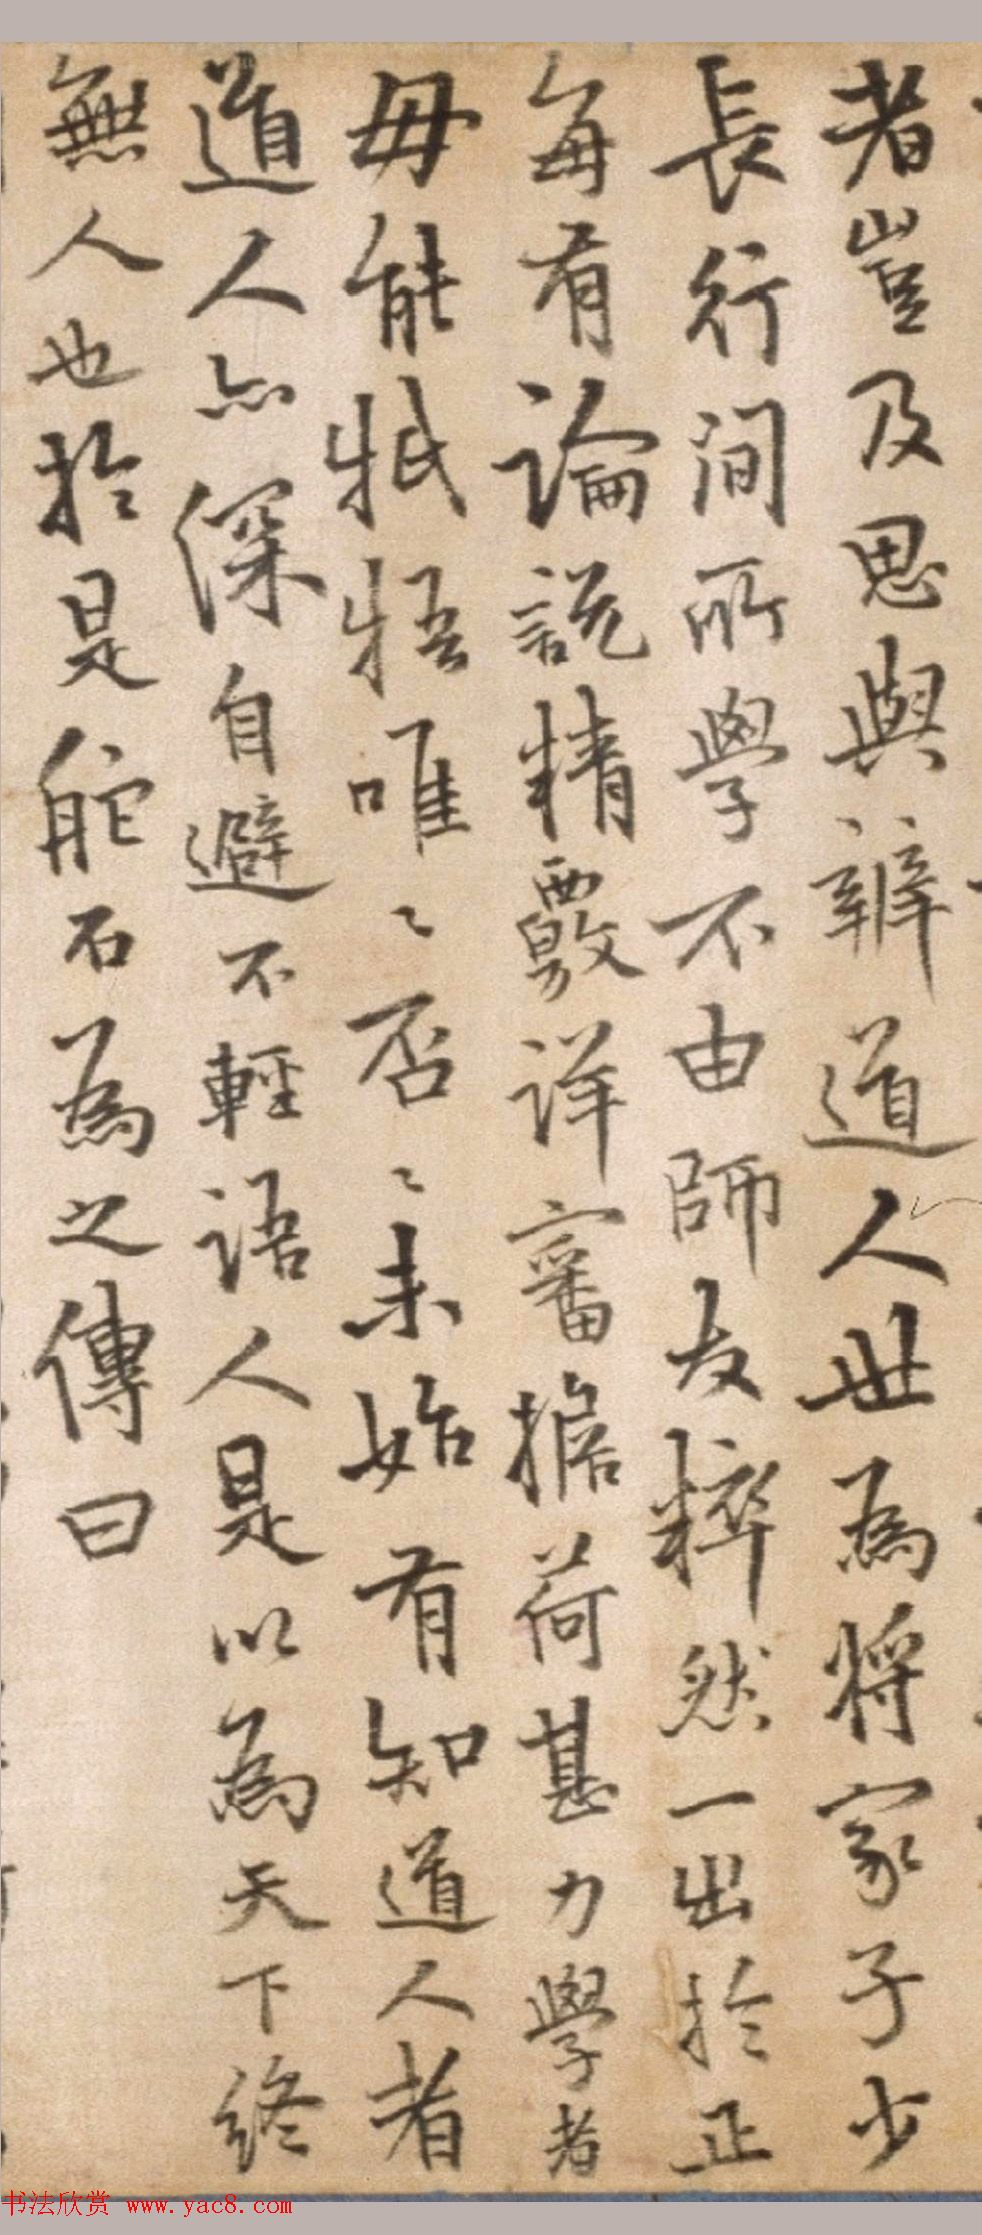 者豈及思與辨道人世為将家子少
長行間所學不由師友粹然一出於正
每有論說精覈詳審擔荷甚力學者
毋能牴牾唯〻否〻未始有知道人者
道人亦深自避不輕語人是以為天下終
無人也於是舵石為之傳曰
书法欣赏 www.yac8.com